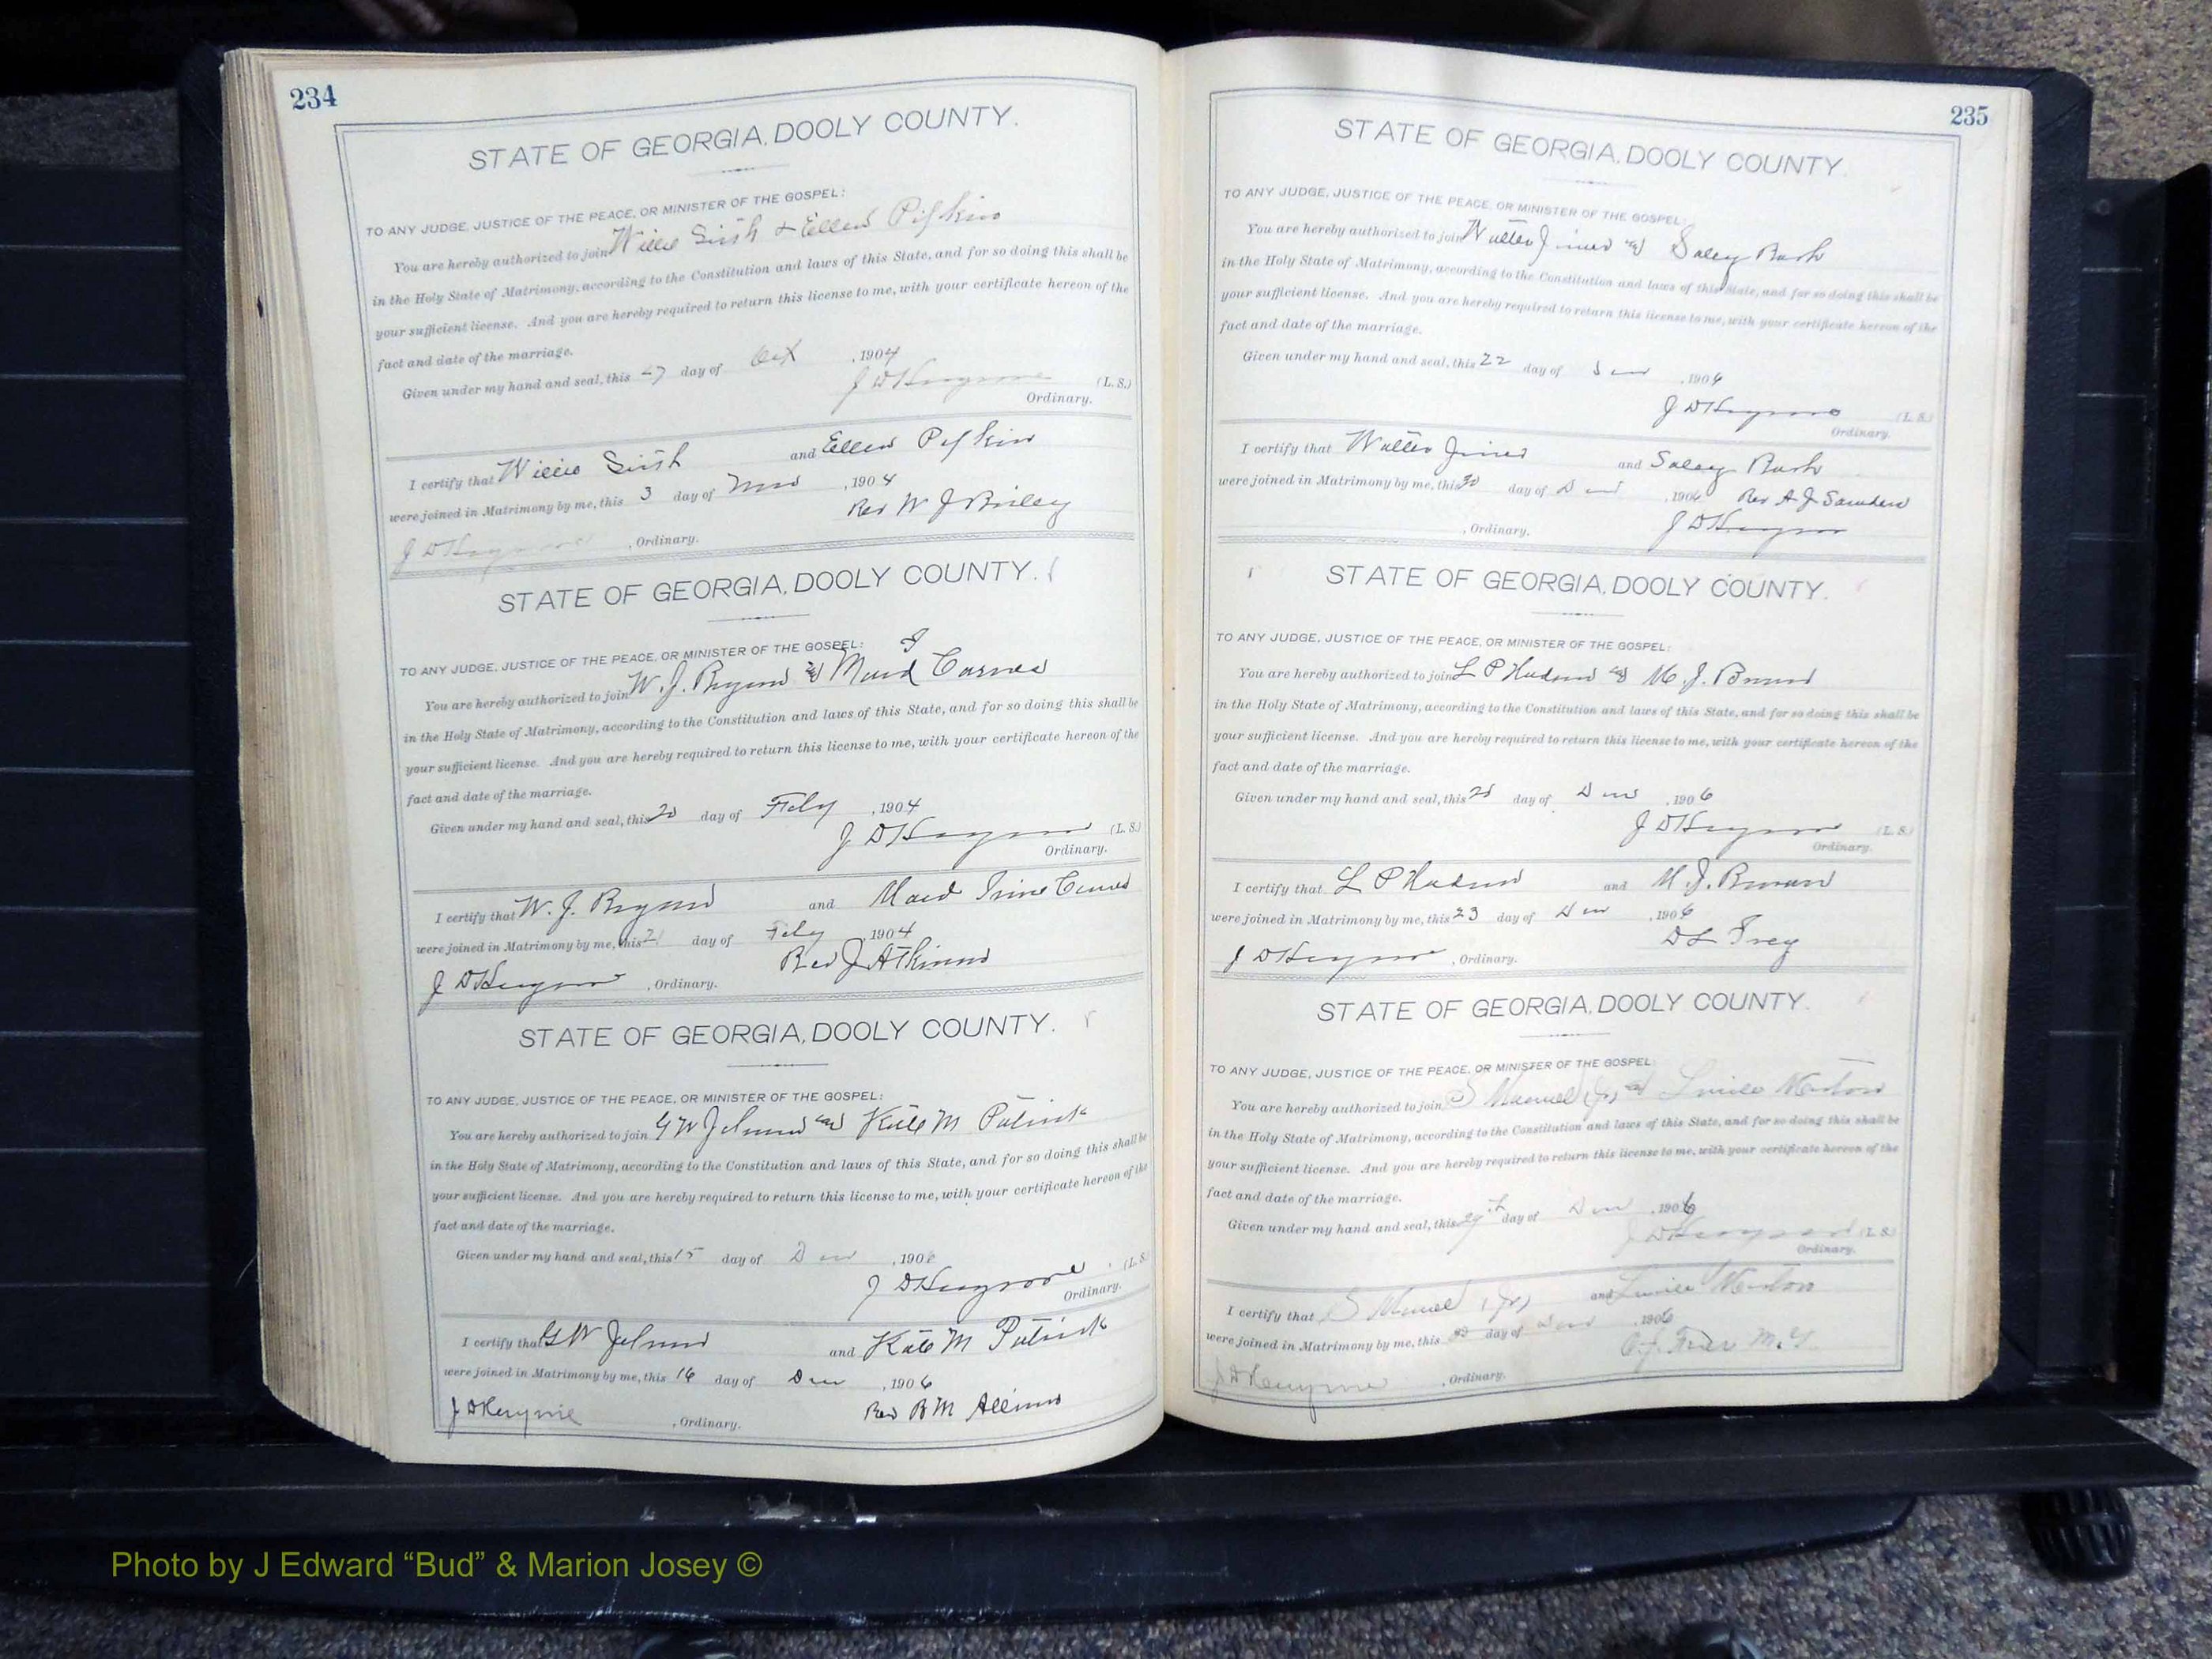 234
STATE OF GEORGIA, DOOLY COUNTY.
TO ANY JUDGE, JUSTICE OF THE PEACE, OR MINISTER OF THE GOSPEL:
You are hereby authorized to join Willie & Ellen Pipkin
in the Holy State of Matrimony, according to the Constitution and laws of this State, and for so doing this shall be
your sufficient license. And you are hereby required to return this license to me, with your certificate hereon of the
fact and date of the marriage.
Given under my hand and seal, this day of Oct , 1904
J D Hargrove (L. S.)
Ordinary.
I certify that Willie and Ellen Pipkin
were joined in Matrimony by me, this 3 day of , 1904
Rev W J
J D Hargrove , Ordinary.
STATE OF GEORGIA, DOOLY COUNTY.
TO ANY JUDGE, JUSTICE OF THE PEACE, OR MINISTER OF THE GOSPEL:
You are hereby authorized to join W. J. Maud
in the Holy State of Matrimony, according to the Constitution and laws of this State, and for so doing this shall be
your sufficient license. And you are hereby required to return this license to me, with your certificate hereon of the
fact and date of the marriage.
Given under my hand and seal, this 20 day of Feby , 1904
J D Hargrove (L. S.)
Ordinary.
I certify that W. J. and Maud
were joined in Matrimony by me, this 21 day of Feby , 1904
J D Hargrove , Ordinary. Rev J Atkinson
STATE OF GEORGIA, DOOLY COUNTY.
TO ANY JUDGE, JUSTICE OF THE PEACE, OR MINISTER OF THE GOSPEL:
You are hereby authorized to join G W Johnson and Kate M Patrick
in the Holy State of Matrimony, according to the Constitution and laws of this State, and for so doing this shall be
your sufficient license. And you are hereby required to return this license to me, with your certificate hereon of the
fact and date of the marriage.
Given under my hand and seal, this 15 day of , 190
J D Hargrove (L. S.
Ordinary.
I certify that G W Johnson and Kate M Patrick
were joined in Matrimony by me, this 16 day of , 1906
J D Hargrove , Ordinary. Rev B M
235
STATE OF GEORGIA, DOOLY COUNTY.
TO ANY JUDGE, JUSTICE OF THE PEACE, OR MINISTER OF THE GOSPEL:
You are hereby authorized to join Walter Joiner and
in the Holy State of Matrimony, according to the Constitution and laws of this State, and for so doing this shall be
your sufficient license. And you are hereby required to return this license to me, with your certificate hereon of the
fact and date of the marriage.
Given under my hand and seal, this 22 day of , 1906
J D Hargrove (L. S.)
Ordinary.
I certify that Walter Joiner and
were joined in Matrimony by me, this 30 day of , 1906 Rev A J Saunders
, Ordinary. J D Hargrove
STATE OF GEORGIA, DOOLY COUNTY.
TO ANY JUDGE, JUSTICE OF THE PEACE, OR MINISTER OF THE GOSPEL:
You are hereby authorized to join L P Hudson and M. J.
in the Holy State of Matrimony, according to the Constitution and laws of this State, and for so doing this shall be
your sufficient license. And you are hereby required to return this license to me, with your certificate hereon of the
fact and date of the marriage.
Given under my hand and seal, this day of , 1906
J D Hargrove (L. S.)
Ordinary.
I certify that L P Hudson and M. J.
were joined in Matrimony by me, this 23 day of , 1906
D L
J D Hargrove , Ordinary.
STATE OF GEORGIA, DOOLY COUNTY.
TO ANY JUDGE, JUSTICE OF THE PEACE, OR MINISTER OF THE GOSPEL
You are hereby authorized to join S (Jr) and
in the Holy State of Matrimony, according to the Constitution and laws of this State, and for so doing this shall be
your sufficient license. And you are hereby required to return this license to me, with your certificate hereon of the
fact and date of the marriage.
Given under my hand and seal, this day of , 1906
J D Hargrove (L. S.)
Ordinary.
I certify that S (Jr) and
were joined in Matrimony by me, this day of , 1906
J D Hargrove , Ordinary.
Photo by J Edward “Bud” & Marion Josey ©